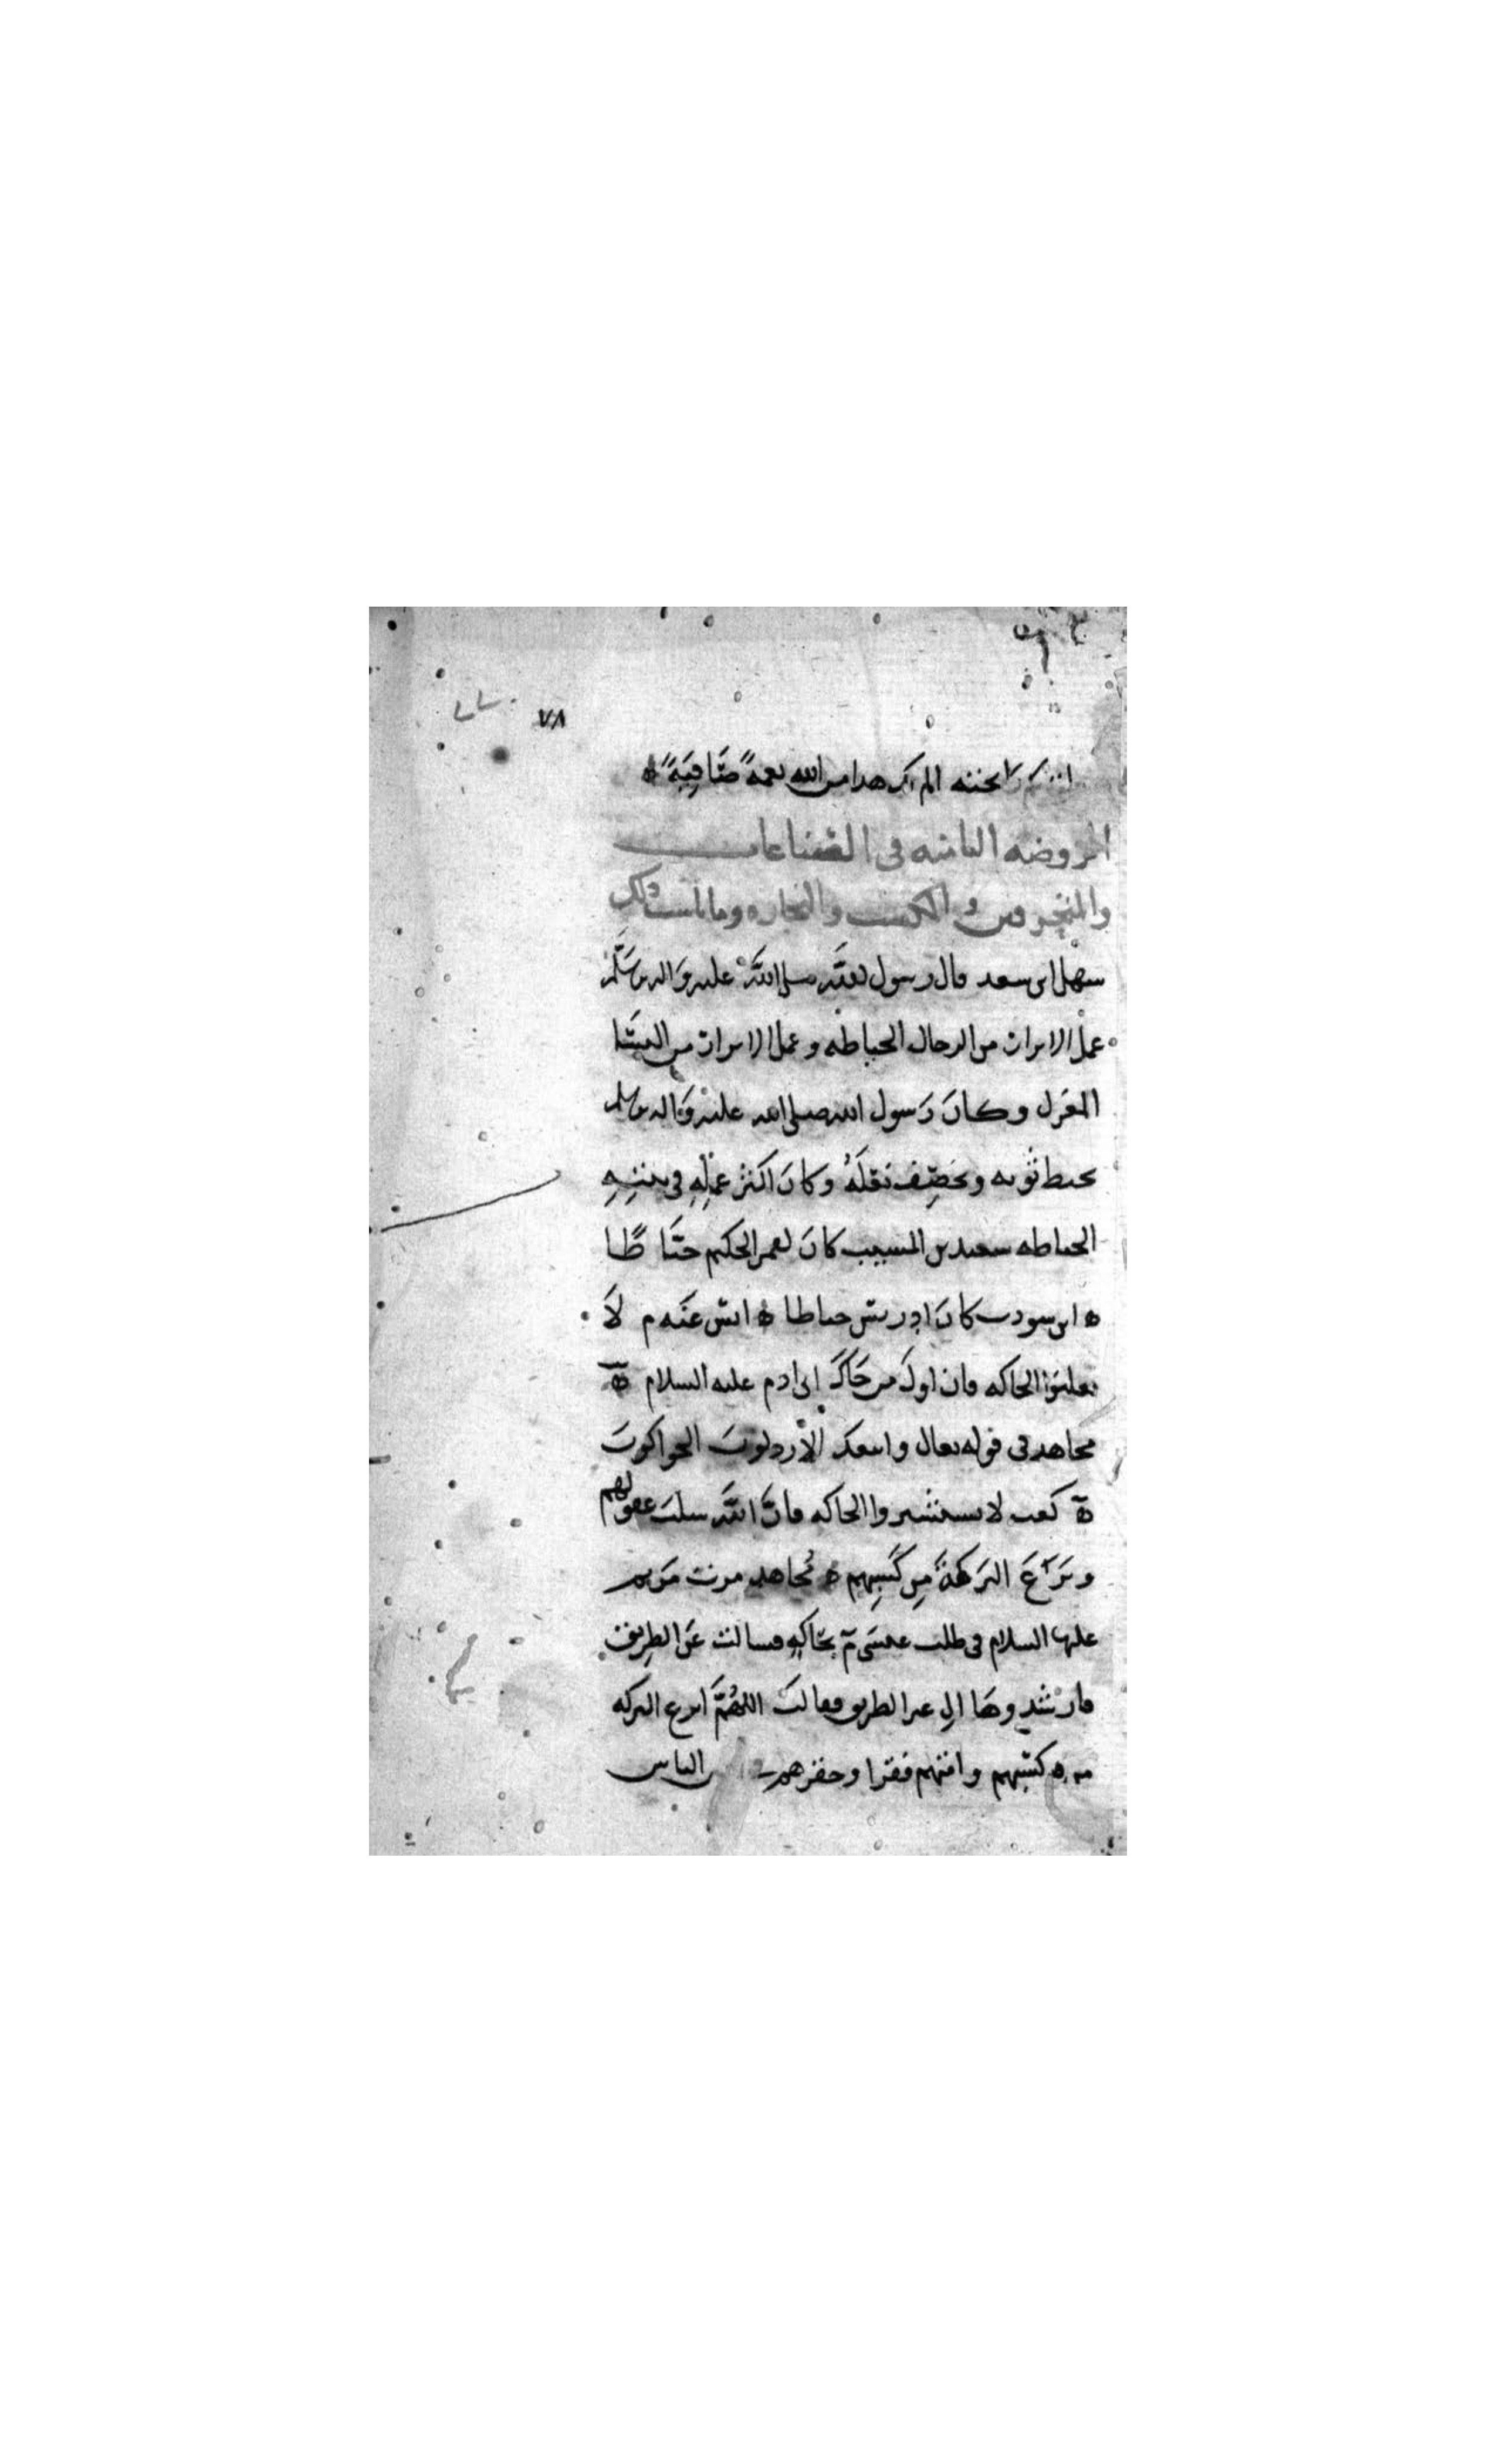 ٧٨
الجنته الم يكن هذا من الله نعمةً ضَافِيَةً ه
الروضه الثامنه فى الصناعات
والمتحرفين و الكسب والتجاره وما ناسب ذلك
سهل ابن سعد قال رسول الله صلى الله عليه واله وسلم
عمل الابرار من الرجال الخياطه وعمل الابرار من النسا
المغزل وكان رَسول الله صلى الله عليه وَاله وسلم
يخيط ثوبه ويخصِف نعله وكانَ اكثر عمَلِهِ فى بيتِهِ
الخياطه سعيد بن المسيب كانَ لقمن الحكيم خيَّاطًا
ه ابن شوذب كانَ ادريس خياطا ه انس عَنه م لَا
تعلينوا الحاكه فان اول من حَاكَ ابى ادم عليه السلام ه
مجاهد فى قوله تعالى واتبعك الأرذلونَ الحواكونَ
ه كعب لا تستشيروا الحاكه فانَّ اللَّه سلبَ عقولهم
ونَزَعَ البَركةَ مِن كَسبِهِم ه مُجاهد مرت مَريم
عليها السلام فى طلب عيسَى م بحَاكهٍ فسالت عَن الطريق
فارشدوها الى غير الطريق فقالت اللهُمَّ انزع البركه
من كسبهم وامتهم فقرا وحقرهم الناس